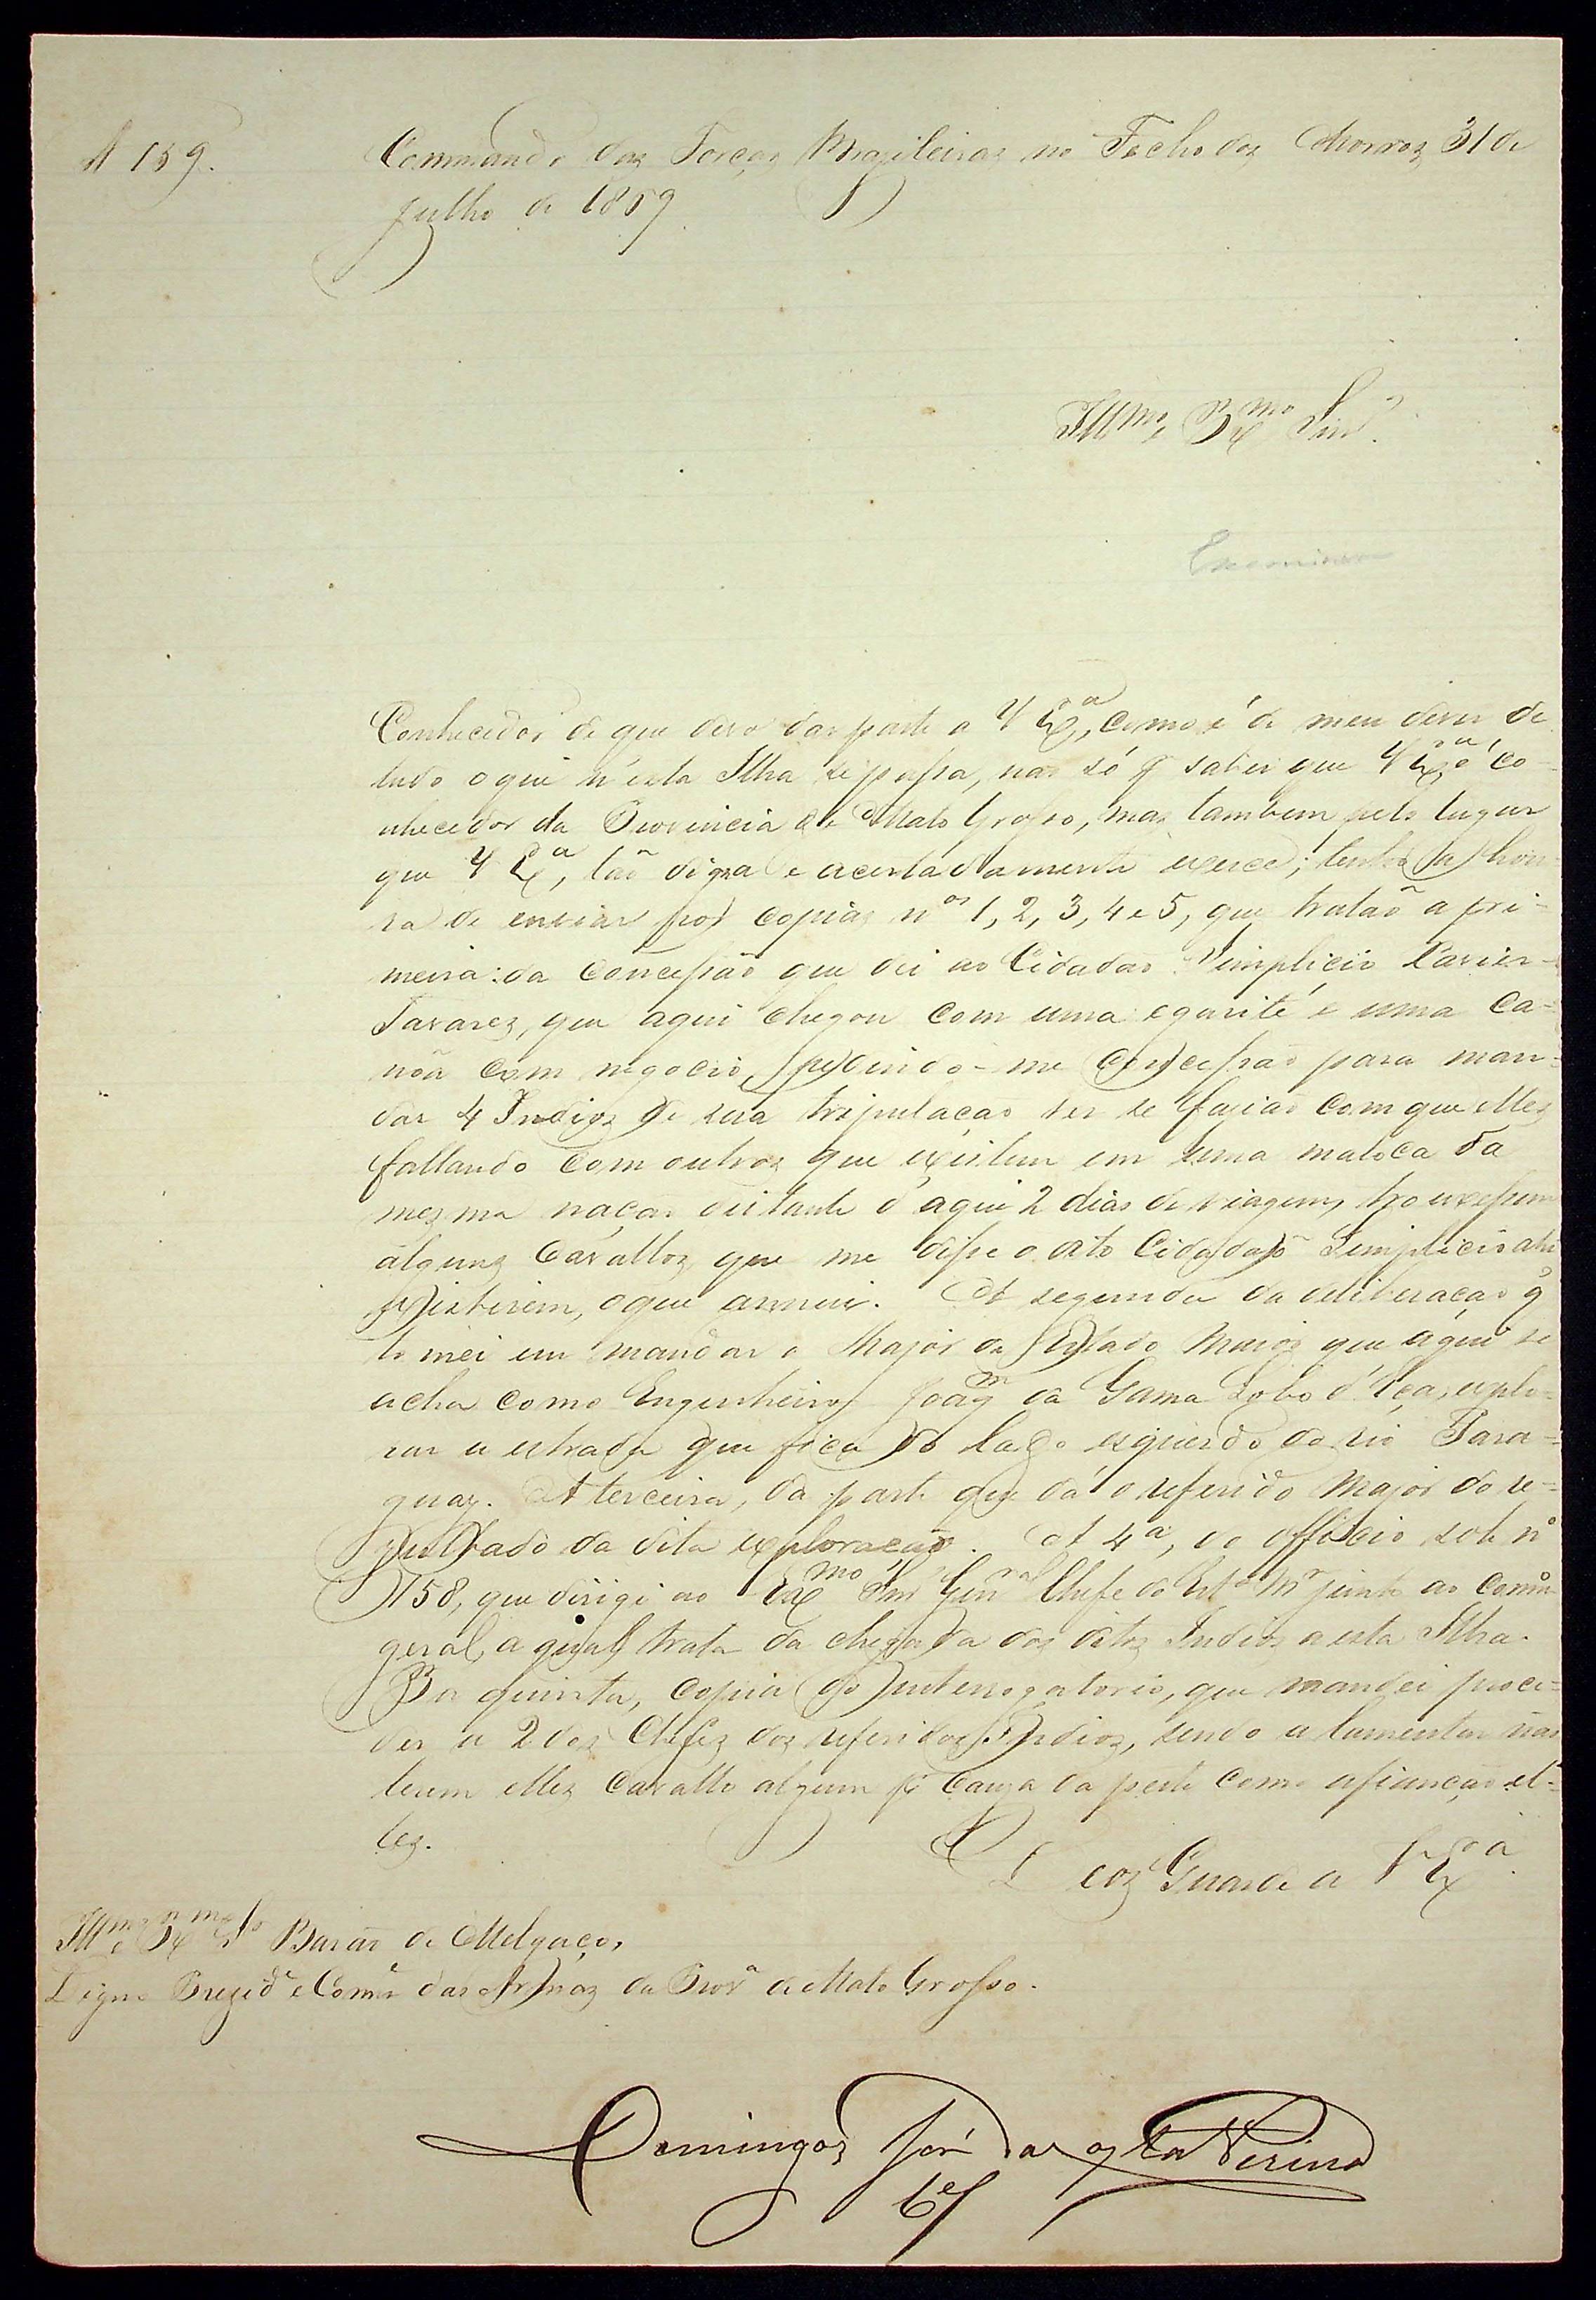 N 159.
Commando das Forças Brazileiras no Fecho dos Morros 31 de
Julho de 1869
Illmo e Exmo Snr.
Examinar
Conhecedor de que devo dar parte a V Exa, como é de meu dever de
tudo o que n'esta Ilha se passa, não só pr saber que V Exa é co-
nhecedor da Provincia de Mato Grosso, mas tambem pelo lugar
que V Exa, tão digna e acertadamente exerce; tenho a hon-
ra de enviar por copias nos 1, 2, 3, 4 e 5, que tratão a pri-
meira: da concessão que dei ao Cidadão Simplicio Xavier
Tavarez, que aqui chegou com uma egarité e uma ca-
nôa com negocio, pedindo-me concessão para man-
dar 4 Indios de sua tripulação ver se fazião com que elles
fallando com outros que existem em uma maloca da
mesma nação distante d'aqui 2 dias de viagem, trouxessem
alguns Cavallos que me disse o dito Cidadão Simplicio ahi
existirem, o que annui. A segunda da deliberação q
tomei em mandar o Major do Estado Maior que aqui se
acha como Engenheiro Joaqm da Gama Lobo d'Eça, explo-
rar a estrada que fica do lado esquerdo do rio Para-
guay. A terceira, da parte que dá o referido Major do re-
zultado da dita exploração. A 4a, do officio sob no
158, que dirigi ao Exmo Snr Genal Chefe do Esto Mr junto ao Comdo
geral, a qual trata da chegada dos ditos Indios a esta Ilha.
E a quinta, copia do interrogatorio, que mandei proce-
der a 2 dos Chefes dos referidos Indios, sendo a lamentar não
terem elles Cavallo algum pr cauza da peste como afianção el-
les.
Deos Guarde a V Exa
Illmo e Exmo Sr Barão de Melgaço,
Digno Prezide e Come das Armas da Prova de Mato Grosso.
Domingos José da Costa Pereira
Cel